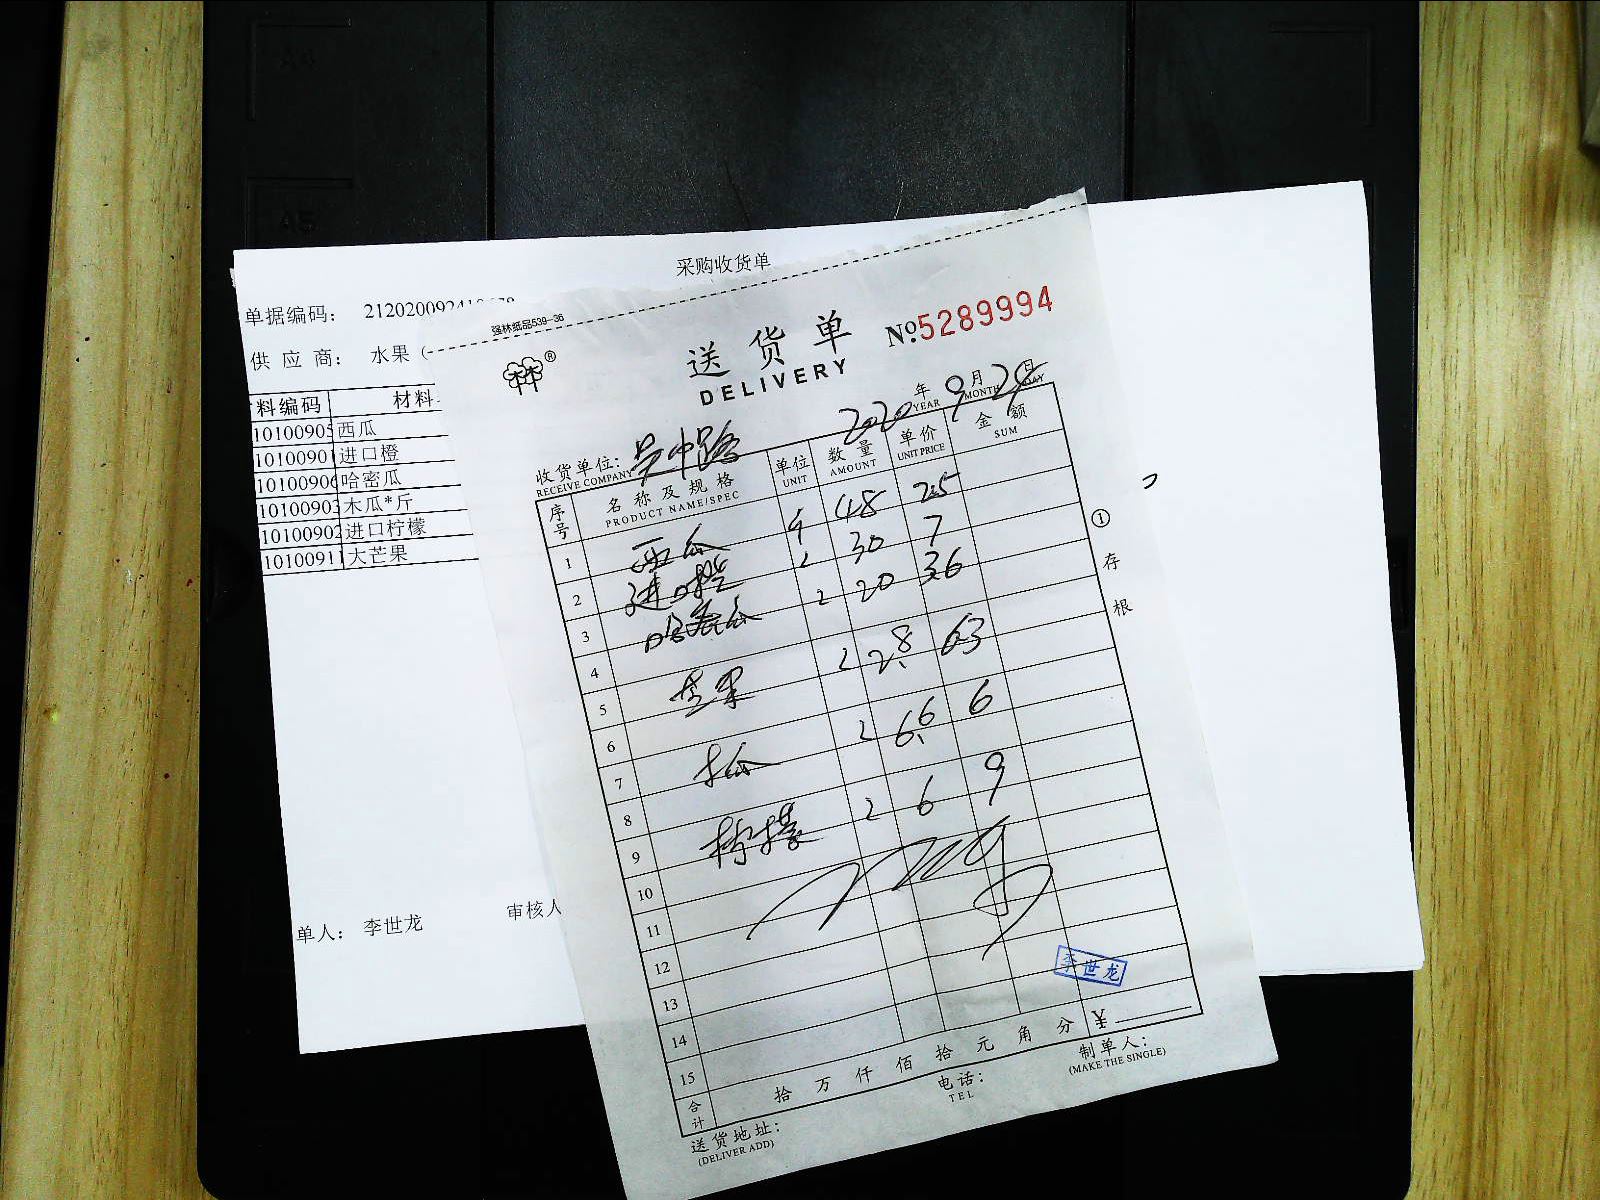 采购收货单
单据编码：
供 应 商： 水果（
料编码 材料
10100905 西瓜
10100901 进口橙
10100906 哈密瓜
10100903 木瓜*斤
10100902 进口柠檬
10100911 大芒果
单人： 李世龙 审核人
强林纸品539-36
®
送货单
DELIVERY
No.5289994
2020 年 9 月 24 日
YEAR MONTH DAY
收货单位： 吴中路
RECEIVE COMPANY
序号 名称及规格 单位 数量 单价 金额
PRODUCT NAME/SPEC UNIT AMOUNT UNIT PRICE SUM
1 西瓜 48 2.5
2 进口橙 30 7
3 哈密瓜 20 3.6
4
5 芒果 2.8 63
6
7 木瓜 6.6 6
8
9 柠檬 6 9
10
11
12
13
14
15
李世龙
合计 拾 万 仟 佰 拾 元 角 分 ¥
送货地址： 电话： 制单人：
(DELIVER ADD) TEL (MAKE THE SINGLE)
① 存根